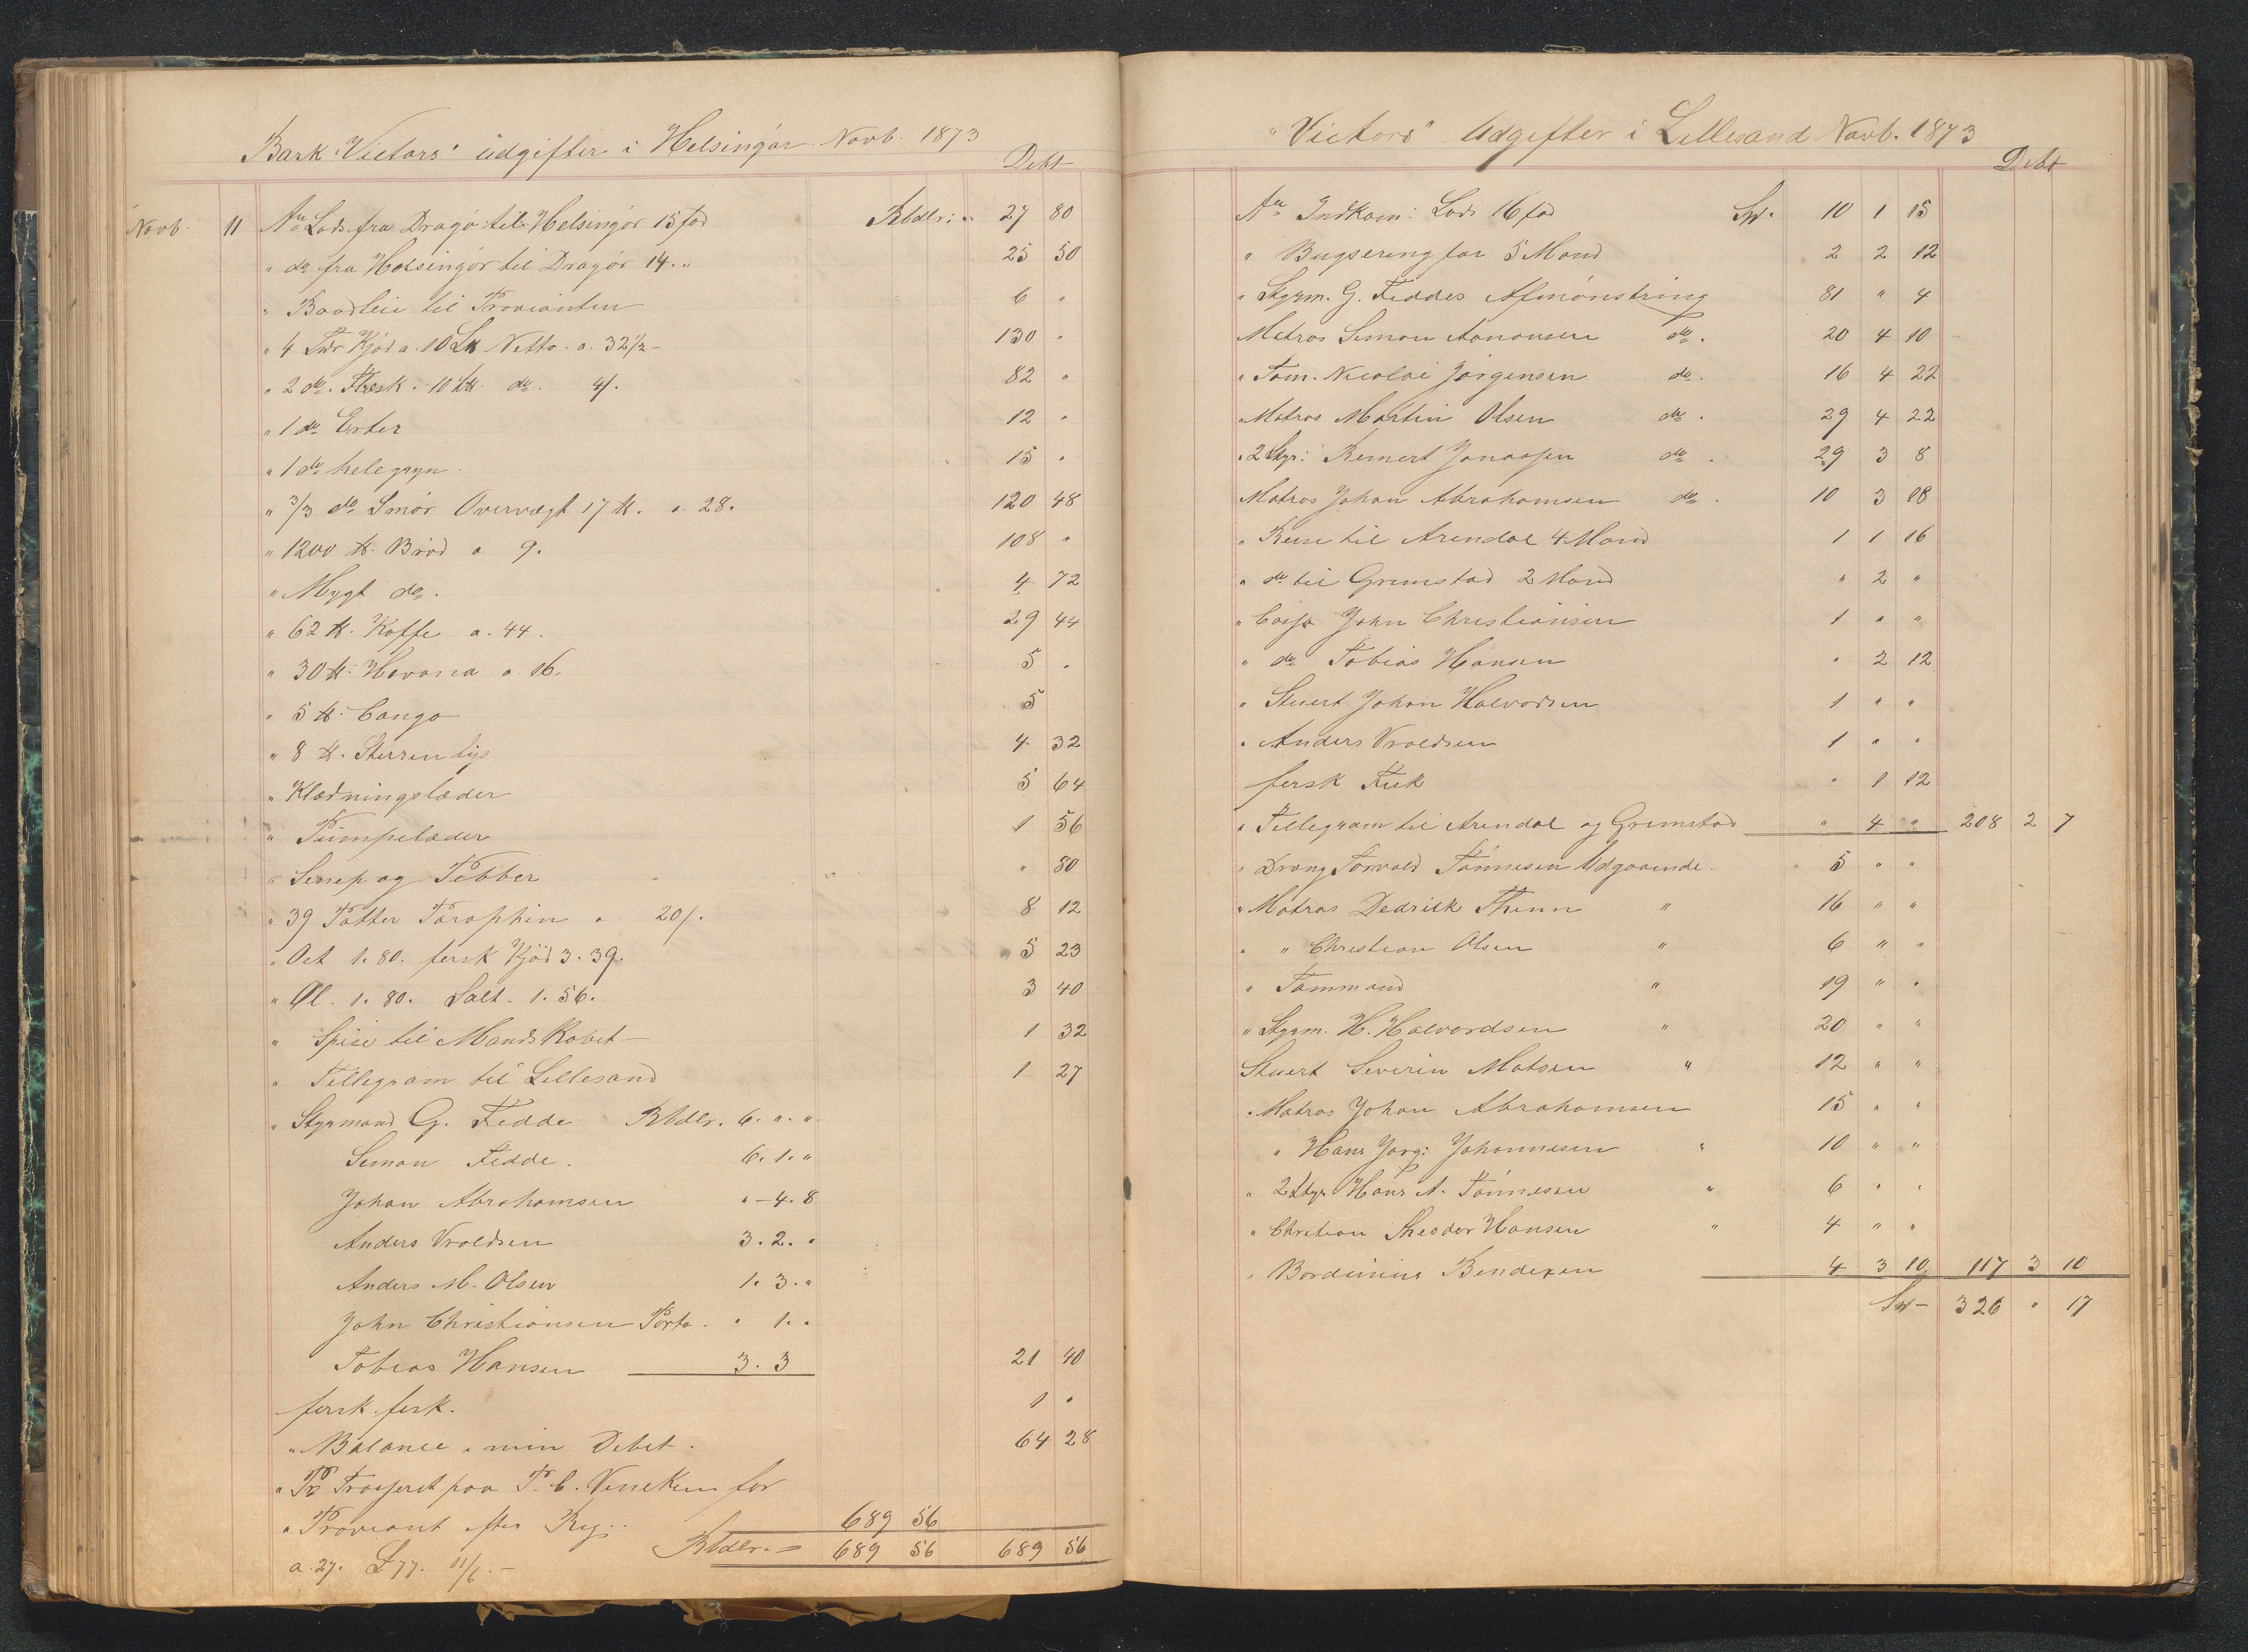 Bark "Victors" udgifter i Helsingør Novb. 1873
Debt
Novb. 11 An Lods fra Dragø til Helsingör 15 fod Rbdlr: " 27 80
" do fra Helsingör til Dragör 14 . " 25 50
" Baadleie til Provianten 6 "
" 4 Tdr Kjöd a. 10 L℔ Netto. a. 32½ - 130 "
" 2 do. Flæsk. 10 L℔. do. 41. 82 "
" 1 do Erter 12 "
" 1 do helegryn 15 "
" 3/3 do Smör Overvægt 17 ℔. a 28. 120 48
" 1200 ℔. Bröd a 9. 108 "
" Mygt do. 4 72
" 62 ℔. Kaffe a. 44. 29 44
" 30 ℔. Havana a 16. 5 .
" 5 ℔. Congo 5
" 8 ℔. Sterren lys 4 32
" Klædningslæder 5 64
" Pumpelæder 1 56
" Senep og Pebber " 80
" 39 Potter Paraphin a 20/. 8 12
" Oct 1. 80. fersk Kjöd 3. 39. 5 23
" Øl. 1. 80. Salt. 1. 56. 3 40
" Spise til Mandskabet - 1 32
" Tellegram til Lillesand 1 27
" Styrmand G. Fedde Rbdlr. 6. ". "
Simon Fedde. 6. 1. "
Johan Abrahamsen " - 4. 8
Anders Vroldsen 3. 2. "
Anders M. Olsen 1. 3. "
John Christiansen Porto. " 1. "
Tobias Hansen 3. 3 21 40
fersk fesk. 1 "
" Balance i min Debet. 64 28
" Pr Trasseret paa P. C. for
" Proviant efter Reg: 689 56
a. 27. £ 77. 11/6. - Rbdlr. = 689 56 689 56
"Victors" Udgifter i Lillesand Novb. 1873
Debt
An Indkom: Lods 16 fod Sp. 10 1 15
" Bugsering for 5 Mand 2 2 12
" Styrm. G. Feddes Afmönstring 81 " 4
Matros Simon Aanonsen do. 20 4 10
" Tøm. Nicolai Jörgensen do. 16 4 22
" Matros Martin Olsen do. 29 4 22
" 2 Styr: Reinert Jonassen do. 29 3 8
Matros Johan Abrahamsen do. 10 3 18
" Reise til Arendal 4 Mand 1 1 16
" do til Grimstad 2 Mand " 2 "
" John Christiansen 1 " "
" do Tobias Hansen " 2 12
" Stuert Johan Halvorsen 1 " "
" Anders Vroldsen 1 " "
fersk Fisk " 1 12
" Tellegram til Arendal og Grimstad " 4 " 208 2 7
" Dræng Torvald Tönnesen Udgaaende. 5 " "
" Matros Dedrick Thenn " 16 " "
" " Christian Olsen " 6 " "
" Tømmand " 19 " "
" Styrm. H. Halvordsen " 20 " "
Stuert Severin Matsen " 12 " "
" Matros Johan Abrahamsen 15 " "
" Hans Jørg: Johannesen " 10 " "
" 2 Styr Hans A. Tönnesen " 6 " "
" Chrstian Theodor Hansen " 4 " "
" Bordinius Bendixen 4 3 10 117 3 10
Sp - 326 " 17